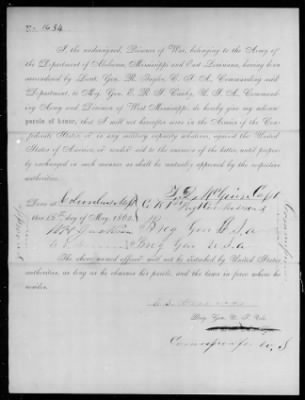 No. 1634
I, the undersigned, Prisoner of War, belonging to the Army of
the Department of Alabama, Mississippi and East Louisiana, having been
surrendered by Lieut. Gen. R. Taylor, C. S. A., Commanding said
Department, to Maj. Gen. E. R. S. Canby, U. S. A., Commanding
Army and Division of West Mississippi, do hereby give my solemn
parole of honor, that I will not hereafter serve in the Armies of the Con-
federate States, or in any military capacity whatever, against the United
States of America, or render aid to the enemies of the latter, until proper-
ly exchanged in such manner as shall be mutually approved by the respective
authorities.
Capt
Done at Columbus Miss
this day of May 1865
Brig Gen C.S.A
Brig Gen U.S.A
The above named officer will not be disturbed by United States
authorities, as long as he observes his parole, and the laws in force where he
resides.
Brig. Gen. U. S. Vols.
Commissioner for U.S